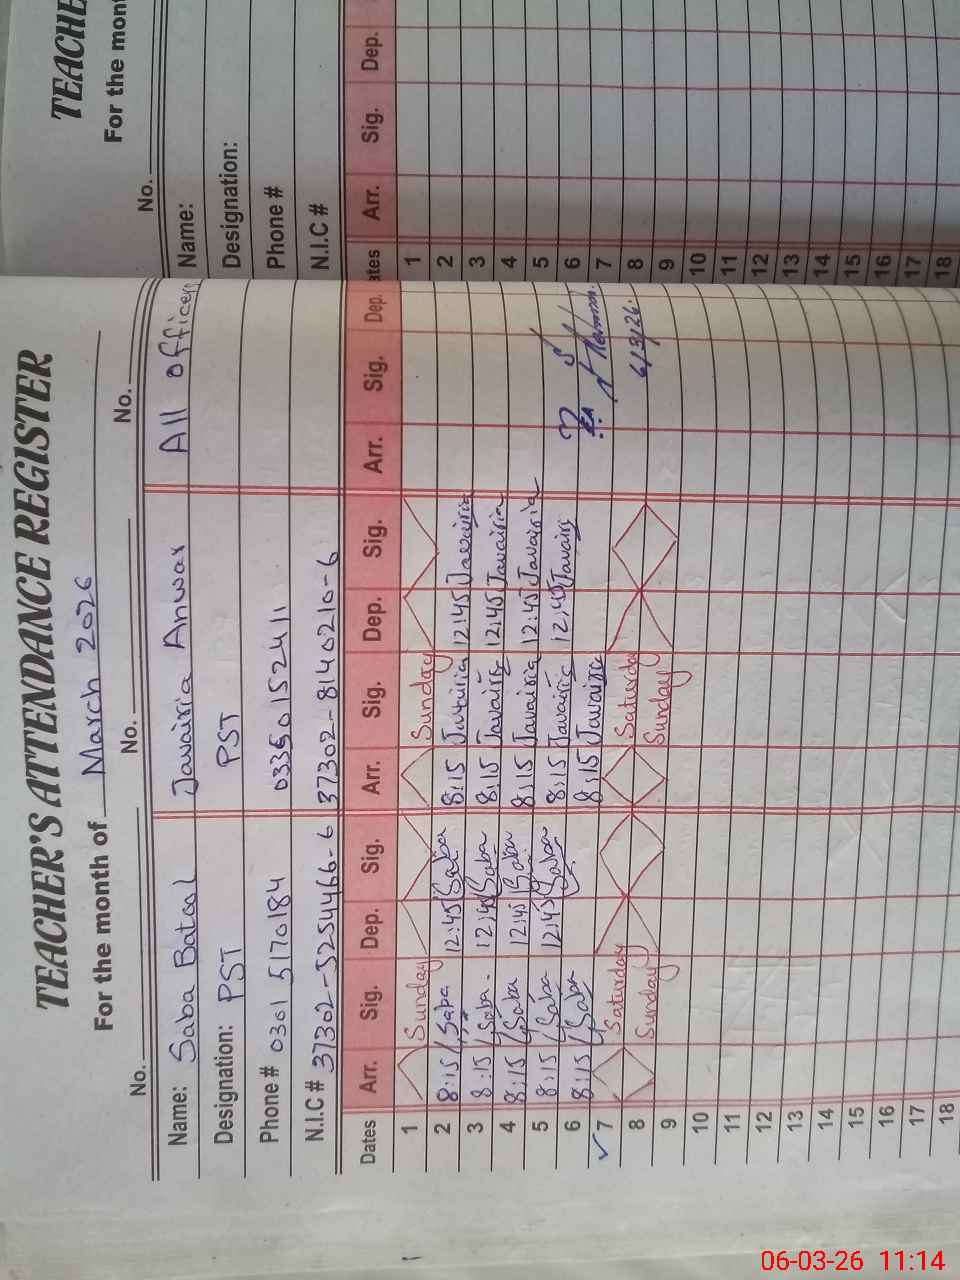 TEACHER'S ATTENDANCE REGISTER
For the month of March 2026
No. No. No. No.
Name: Saba Batool Javairia Anwar All officers
Designation: PST PST
Phone # 0301 5170184 03350152411
N.I.C # 37302-5254466-6 37302-8140210-6
Dates Arr. Sig. Dep. Sig. Arr. Sig. Dep. Sig. Arr. Sig. Dep.
1 Sunday Sunday
2 8:15 Saba 12:45 Saba 8:15 Javairia 12:45 Javairia
3 8:15 Saba. 12:45 Saba 8:15 Javairia 12:45 Javairia
4 8:15 Saba 12:45 Saba 8:15 Javairia 12:45 Javairia
5 8:15 Saba 12:45 Saba 8:15 Javairia 12:45 Javairia
6 8:15 Saba 8:15 Javairia
7 Saturday Saturday
8 Sunday Sunday
6/3/26.
9
10
11
12
13
14
15
16
17
18
TEACHE
For the mont
No.
Name:
Designation:
Phone #
N.I.C #
ates Arr. Sig. Dep.
1
2
3
4
5
6
7
8
9
10
11
12
13
14
15
16
17
18
06-03-26 11:14